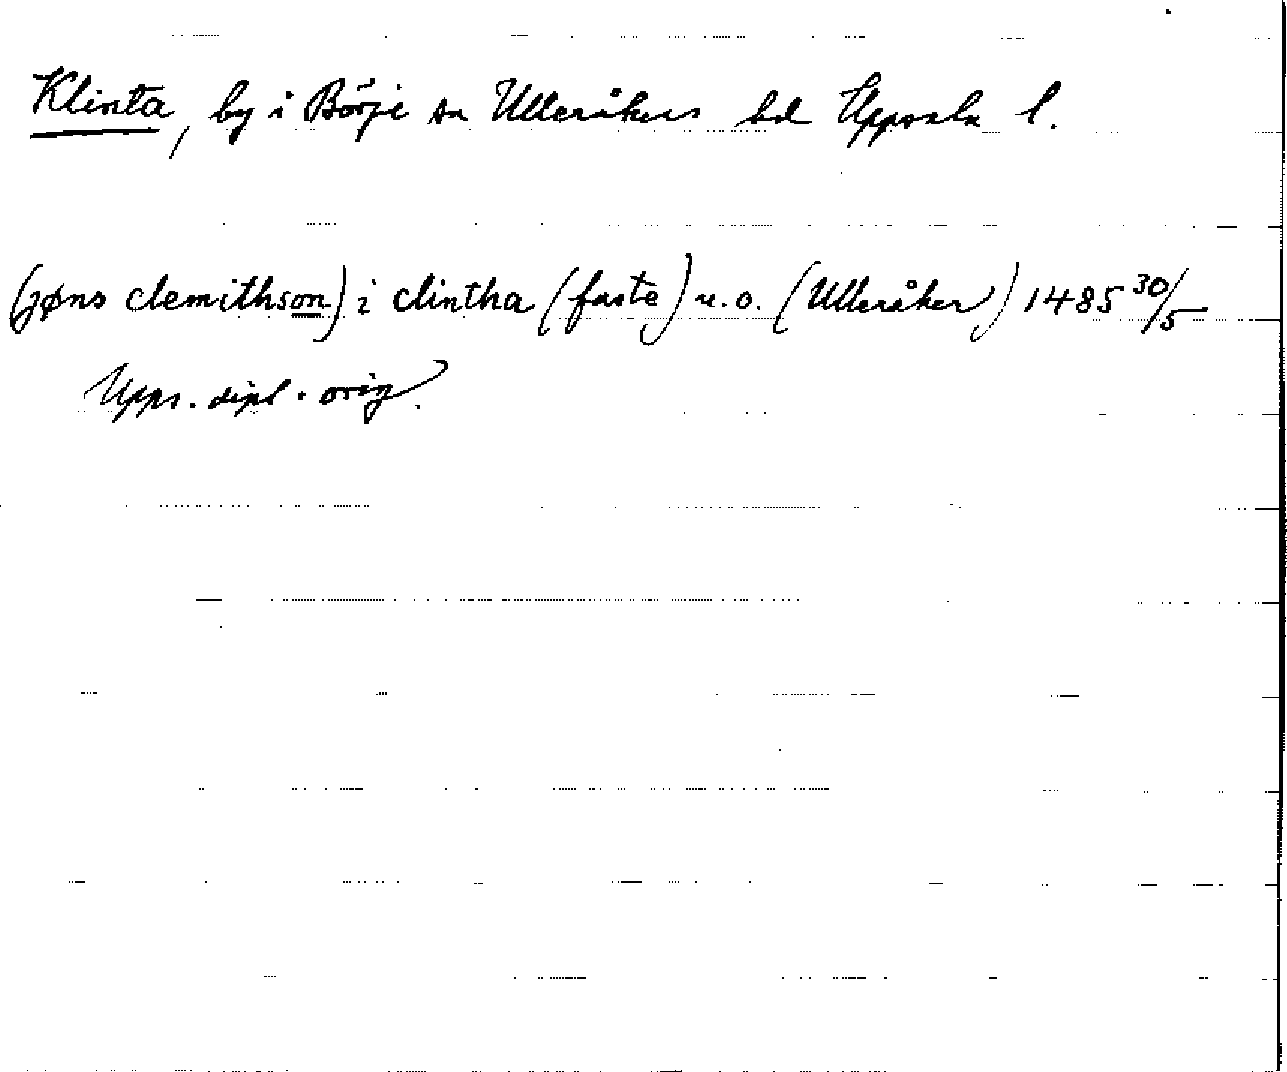 Klinta, by i Börje sn Ulleråkers hd Uppsala l.
(jøns clemithson) i clintha (faste) u.o. (Ulleråker) 1485 30/5
Upps. dipl. orig.